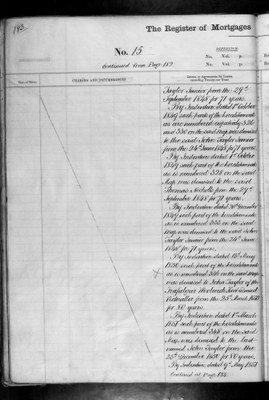 183.
The Register of Mortgages
No. 15
Continued from Page 182
No. Vol. p.
No. Vol. p.
Date of Entry.
Taylor Junior from the 29th
September 1848 for 71 years.
By Indenture dated 1st October
1849 such part of the hereditaments
as was numbered respectively 330
and 330 on the said Map was demised
to the said John Taylor Junior
from the 24th June 1848 for 71 years
By Indenture dated 1st October
1849 such part of the hereditaments
as is numbered 338 on the said
Map was demised to the said
Thomas Nicholls from the 29th
September 1848 for 71 years.
By Indenture dated 20th December
1849 such part of the hereditaments
as is numbered 333 on the said
map was demised to the said John
Taylor Junior from the 24th June
1848 for 71 years.
By Indenture dated 15th May
1850 such part of the hereditaments
as is numbered 344 on the said map
was demised to John Taylor of the
Licensed
Victualler from the 25th March 1850
for 80 years.
By Indenture dated 1st March
1851 such part of the hereditaments
as is numbered 348 on the said
Map was demised to the last
named John Taylor from the
25th December 1850 for 80 years.
By Indenture dated 1st May 1851
Continued at Page 184